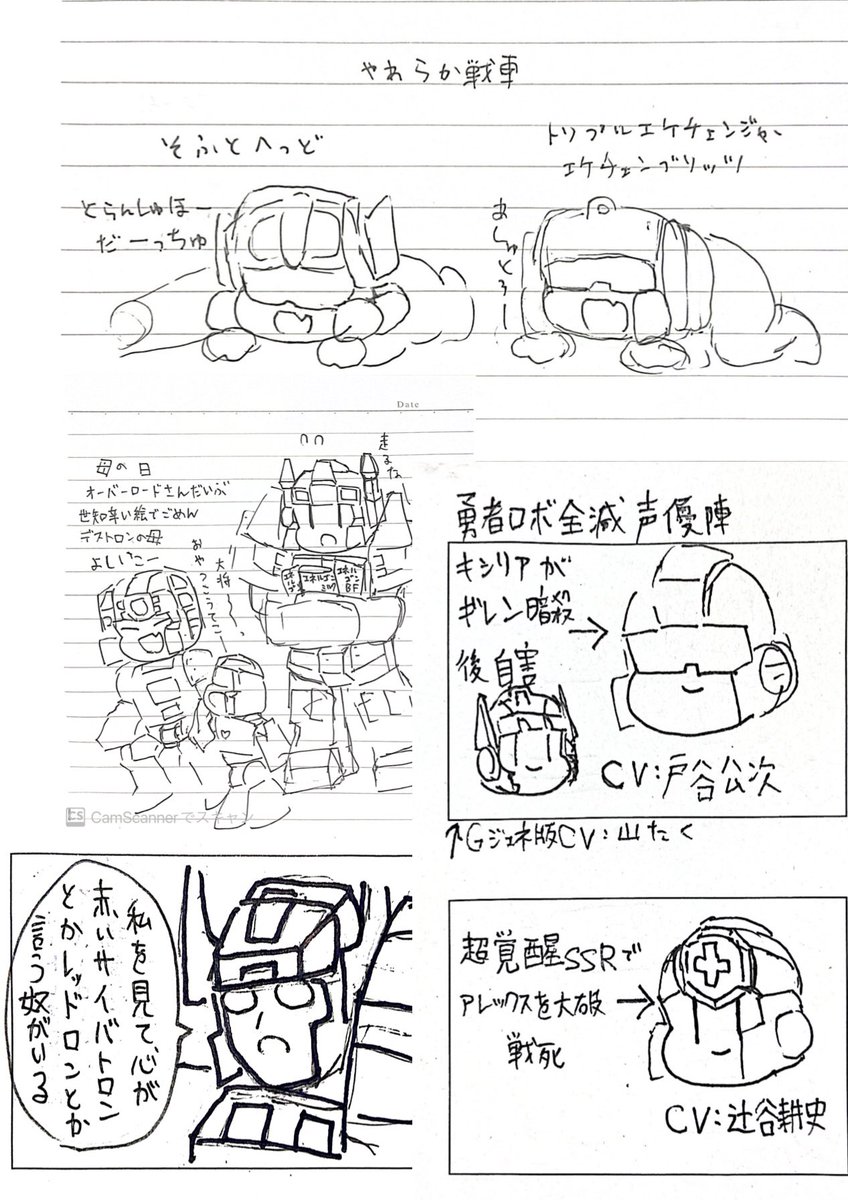 やわらか戦車
そふとへっど
とらんしゅほー
だーっちゅ
トリプルエケチェンジャー
エケチェンブリッツ
あしゅとろー
Date
走るな
母の日
オーバーロードさんだいぶ
世知辛い絵でごめん
デストロンの母
よしいこー
おやつこうてこ
大将〜〜っ
エネルゴン
エネルゴン
ミルク
エネルゴン
BF
CS CamScannerでスキャン
勇者ロボ全滅声優陣
キシリアが
ギレン暗殺
後自害
CV:戸谷公次
↑Gジェネ版CV:山たく
私を見て心が
赤いサイバトロン
とかレッドロンとか
言う奴がいる
超覚醒SSRで
アレックスを大破
戦死
CV:辻谷耕史